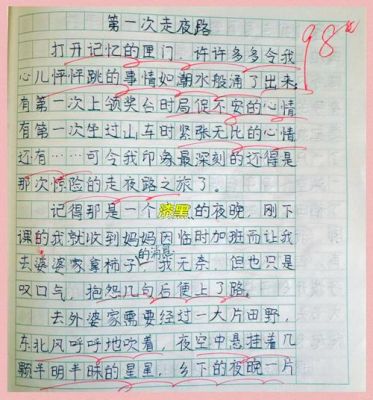 第一次走夜路
98
打开记忆的匣门，许许多多令我
心儿怦怦跳的事情如潮水般涌了出来，
有第一次上领奖台时局促不安的心情
有第一次坐过山车时紧张无比的心情
还有……可令我印象最深刻的还得是
那次惊险的走夜路之旅了。
记得那是一个漆黑的夜晚，刚下
课的我就收到妈妈因临时加班而让我
的消息
去婆婆家拿柿子，我无奈，但也只是
叹口气，抱怨几句后便上了路。
去外婆家需要经过一大片田野，
东北风呼呼地吹着，夜空中悬挂着几
颗半明半昧的星星，乡下的夜晚一片